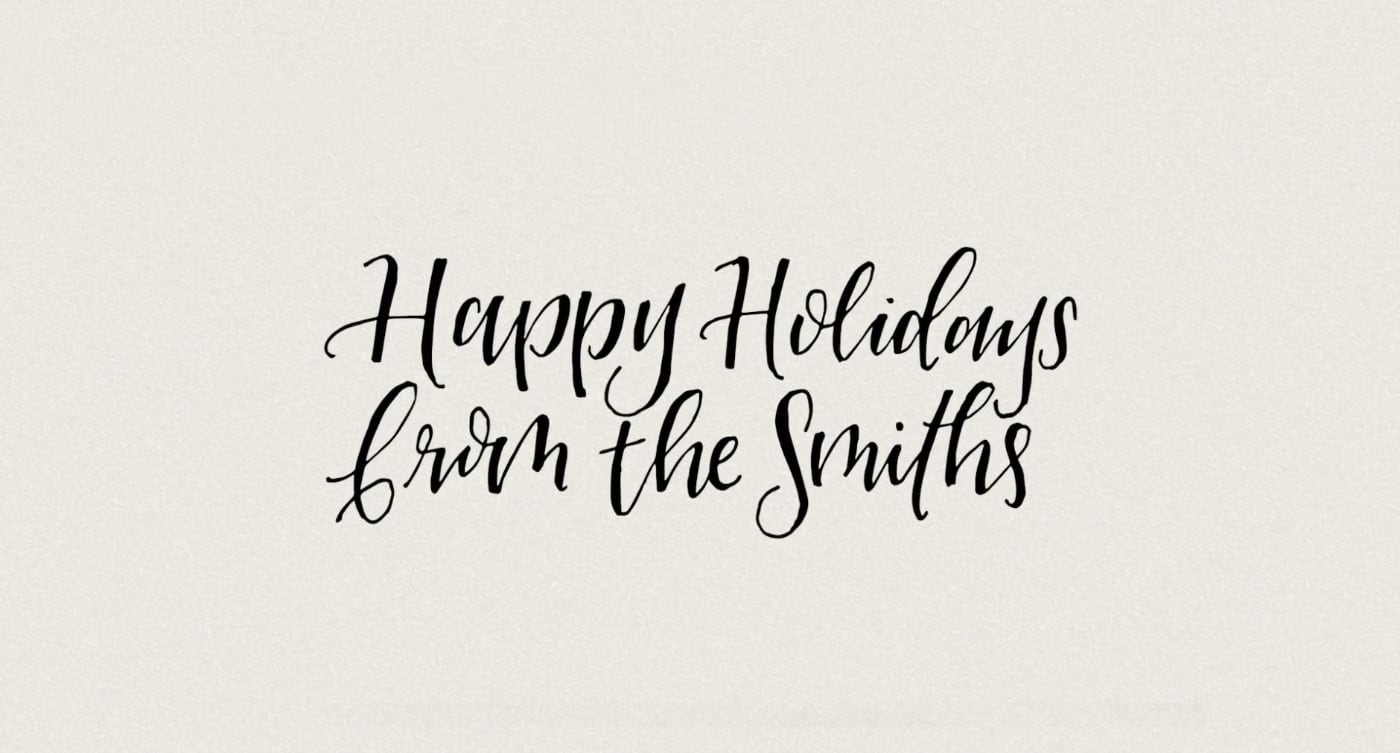 Happy Holidays
from the Smiths